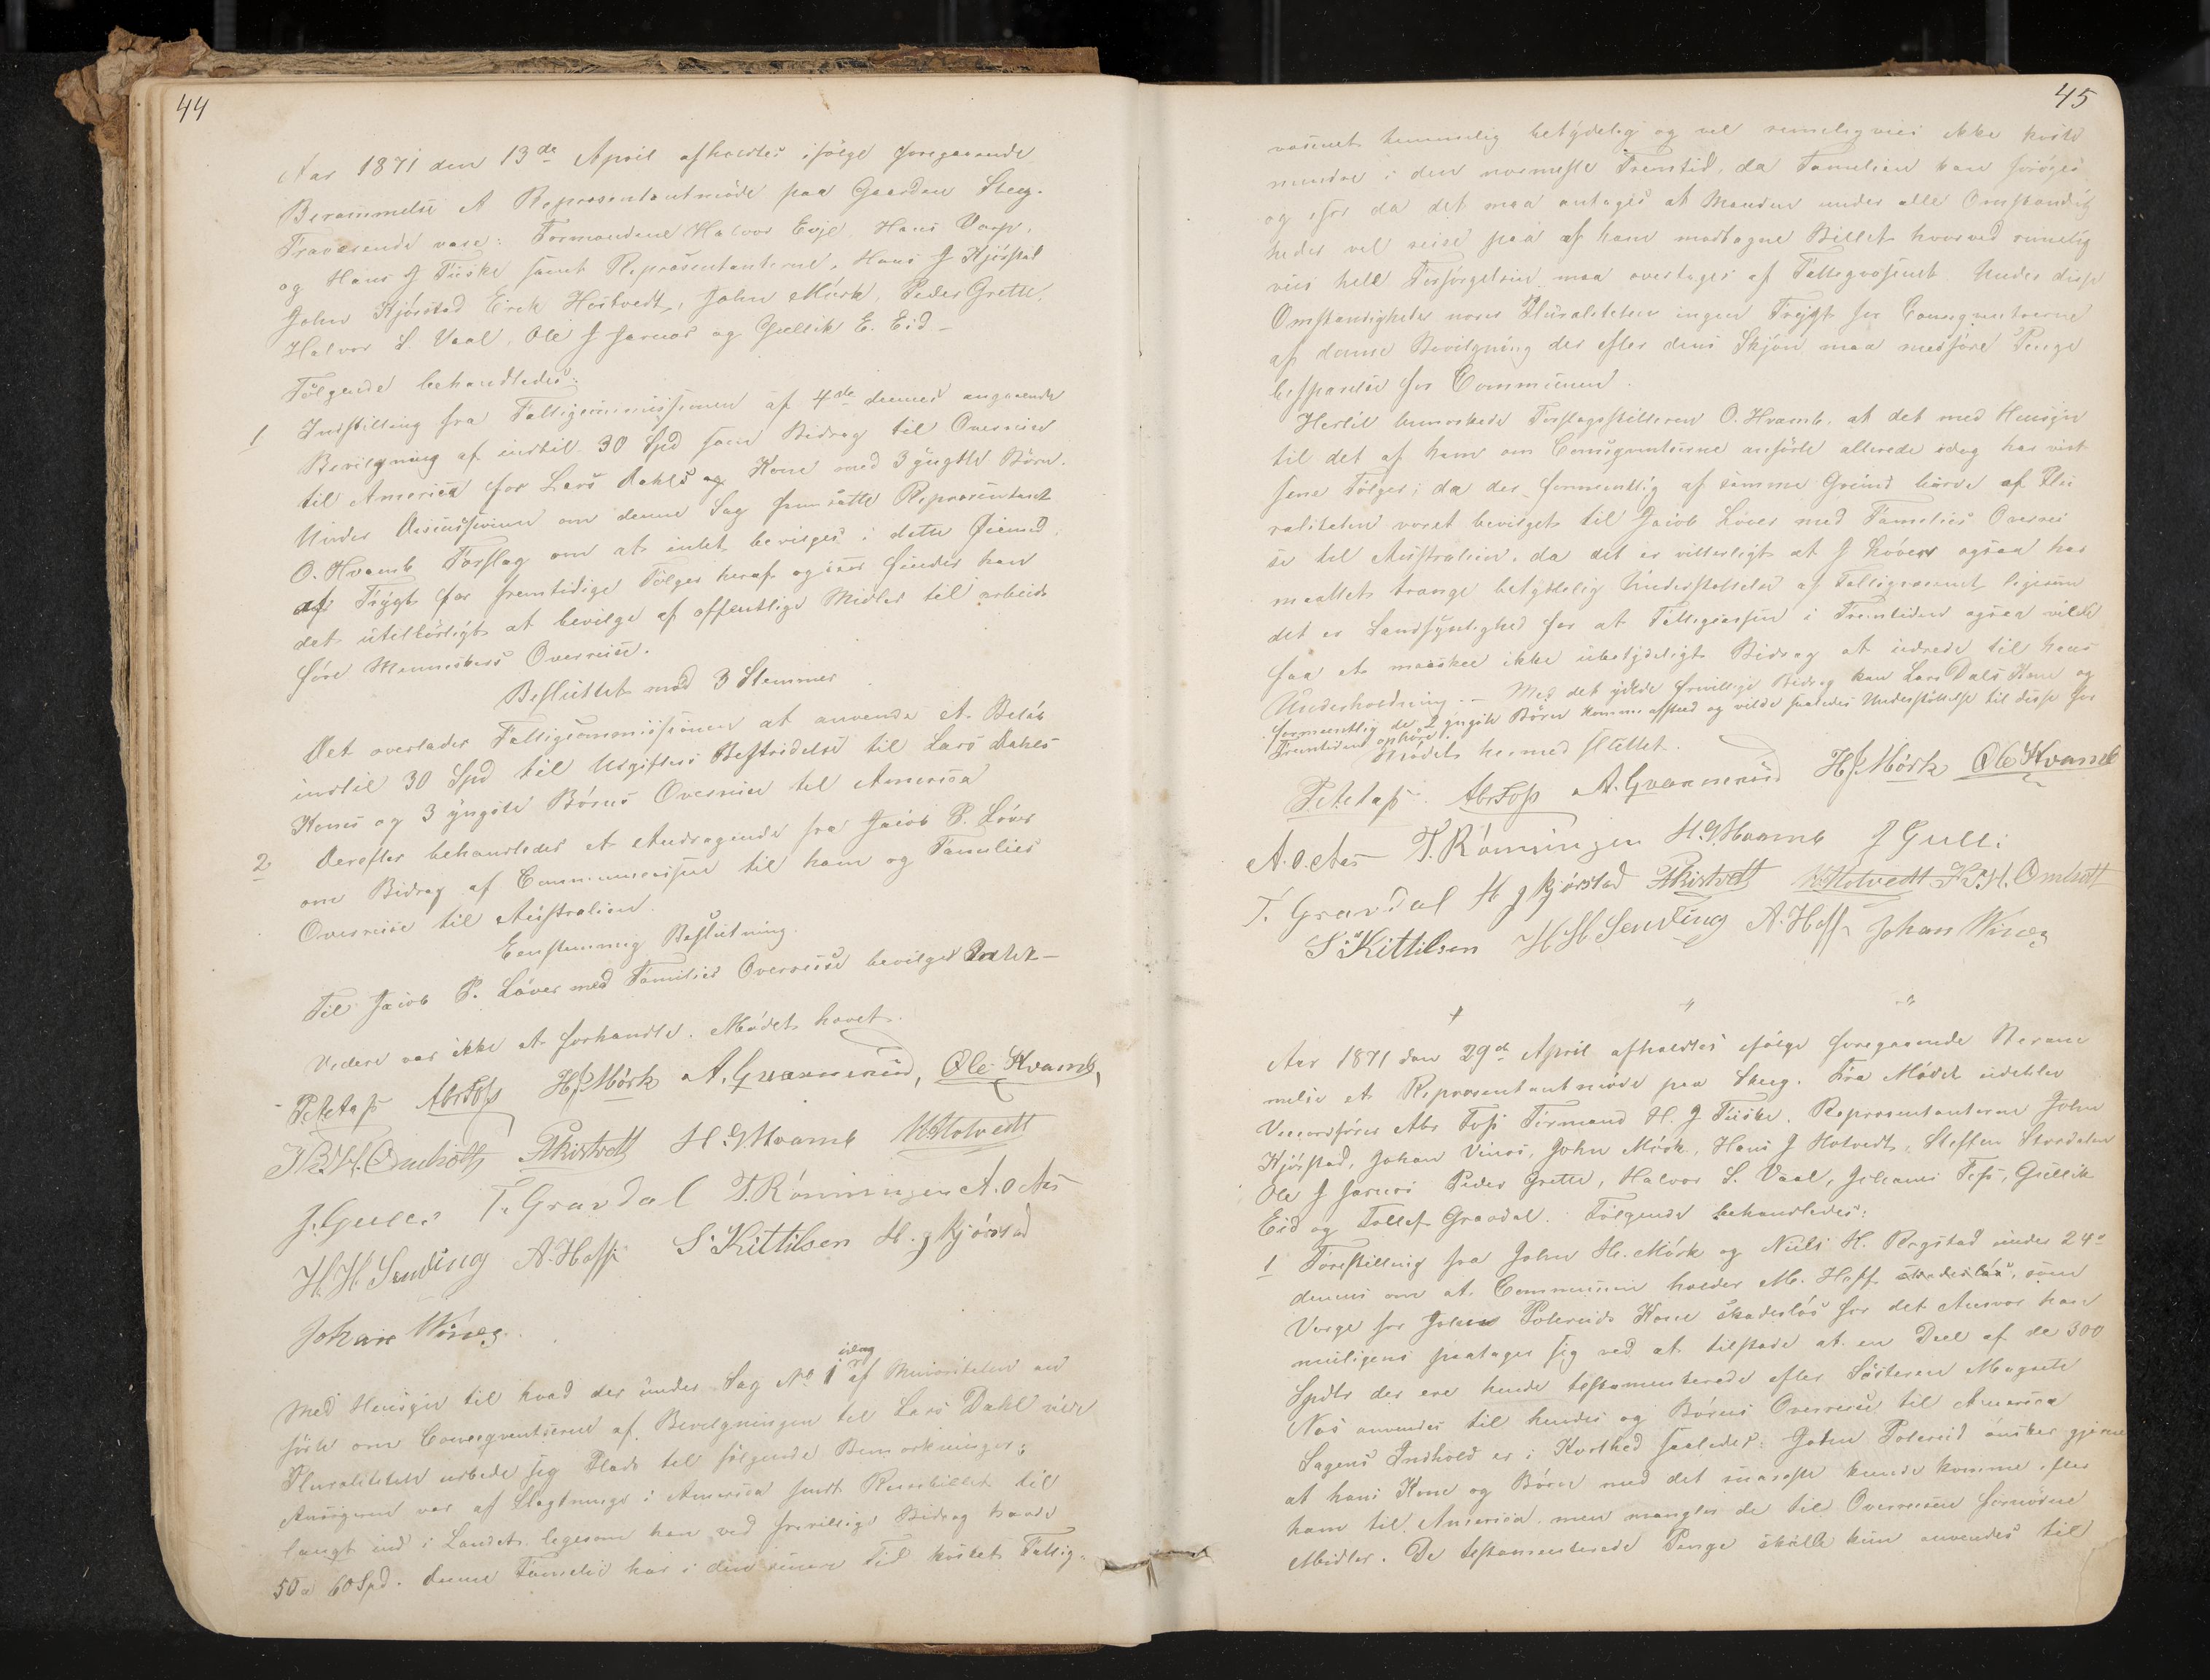 44
Aar 1871 den 13de April afholdtes ifølge foregaaende
Berammelse et Repræsentantmøde paa Gaarden Steg.
Fraværende vare: Formændene Halvor Evje, Hans
og Hans J Fiske samt Repræsentanterne, Hans J Kjørstad
John Kjørstad Erik Hostvedt, John Mørk, Peder Grette,
Halvor S. Vaal, Ole J Jarnæs og Gullik E. Eid –
Følgende behandledes:
1 Indstilling fra Fattigcommissionen af 4de dennes angaaende
Bevilgning af indtil 30 Spd som Bidrag til Overreise
til America for Lars Dahls og Kone med 3 yngste Børn.
Under Discussionen om denne Sag fremsatte Repræsentant
O. Hvamb Forslag om at intet bevilges i dette Øiemed,
af Frygt for fremtidige Følger heraf og især finder han
det utilbørligt at bevilge af offentlige Midler til arbeids
føre Menneskers Overreise.
Besluttet mod 3 Stemmer
Det overlades Fattigcommissionen at anvende et Beløb
indtil 30 Spd til Udgifters Bestridelse til Lars Dahls
Kones og 3 yngste Børns Overreise til America
2 Derefter behandledes et Andragende fra Jacob P. Løver
om Bidrag af Communecassen til ham og Families
Overreise til Australien.
Eenstemmig Beslutning.
Til Jacob P. Løver med Families Overreise bevilges Intet –
Videre var ikke at forhandle. Mødet hævet.
P. Aas Abr Foss HJMørk A. Gvarnerud, Ole Kvamb,
K. H. Omholt H G Hvamb
J. Gulli T. Gravdal T. Rønningen A. O. Aas
H. H. Sending A. Hoff S. Kittilsen H. J Kjørstad
Johan Winæs.
Med Hensyn til hvad der under Sag No 1 idag af Minoriteten an
førte om Conseqventserne af Bevilgningen til Lars Dahl vil
Pluraliteten udbede sig Plads til følgende Bemærkninger:
Ansøgeren var af Slægtninge i America sendt Reisebillet til
langt ind i Landet, ligesom han ved frivillige Bidrag havde
50 a 60 Spd. Denne Familie har i den senere Tid kostet Fattig-
45
væsenet temmelig betydelig og vel rimeligviis ikke koste
mindre i den nærmeste Fremtid, da Familien kan forøges
og især da det maa antages at Manden under alle Omstændig
heder vel reise paa af ham modtagne Billet hvorved rimelig
viis hele Forsørgelsen maa overtages af Fattigvæsenet. Under disse
Omstændigheder nærer Pluraliteten ingen Frygt for Conseqventserne
af denne Bevilgning der efter dens Skjøn maa medføre Penge
besparelse for Communen.
Hertil bemærkede Forslagsstilleren O. Hvamb, at det med Hensyn
til det af ham om Conseqventserne anførte allerede idag har vist
sine Følger; da der formentlig af samme Grund burde af Plu
raliteten været bevilget til Jacob Løver med Families Overrei
se til Australien, da det er vitterligt at J Løver ogsaa har
maattet trænge betydelig Understøttelse af Fattigvæsenet, ligesom
det er Sandsynlighed for at Fattigcassen i Fremtiden ogsaa vilde
faa et maaskee ikke ubetydeligt Bidrag at udrede til hans
Underholdning. – Med det ydede frivillige Bidrag kan Lars Dals Kone og
formentlig de 2 yngste Børn komme afsted og vilde saaledes Understøttelse til disse for
Fremtiden ophøre.
Mødet hermed sluttet.
P. Aas Abr Foss A. Gvarnerud HJMørk Ole Kvamb
A. O. Aas T. Rønningen H. G Hvamb J Gulli
T. Gravdal H J Kjørstad K. H. Omholt
S. Kittilsen H H Sending A. Hoff Johan Winæs
Aar 1871 den 29de April afholdtes ifølge foregaaende Beram
melse et Repræsentantmøde paa Steg. Fra Mødet udeblev
Viceordfører Abr Foss Formand H. J Fiske. Repræsentanterne John
Kjørstad, Johan Vinæs, John Mørk, Hans J Hotvedt, Steffen Stordalen
Ole J Jarnæs Peder Grette, Halvor S. Vaal, Johannes Foss, Gullik
Eid og Tollef Gravdal. Følgende behandledes:
1 Forestilling fra John H. Mørk og Niels H. Bergstad under 24de
dennes om at Communen holder M. Hoff skadesløs, som
Verge for John Polereids Kone skadesløs for det Ansvar han
muligens paatager sig ved at tilstæde at en Deel af de 300
Spdlr der ere hende testamenterede efter Søsteren Margrete
Næs anvendes til hendes og Børns Overreise til America
Sagens Indhold er i Korthed saaledes: John Polereid ønsker gjerne
at hans Kone og Børn med det snareste kunde komme efter
ham til America, men mangler de til Overreisen fornødne
Midler. De testamenterede Penge skulle kun anvendes til